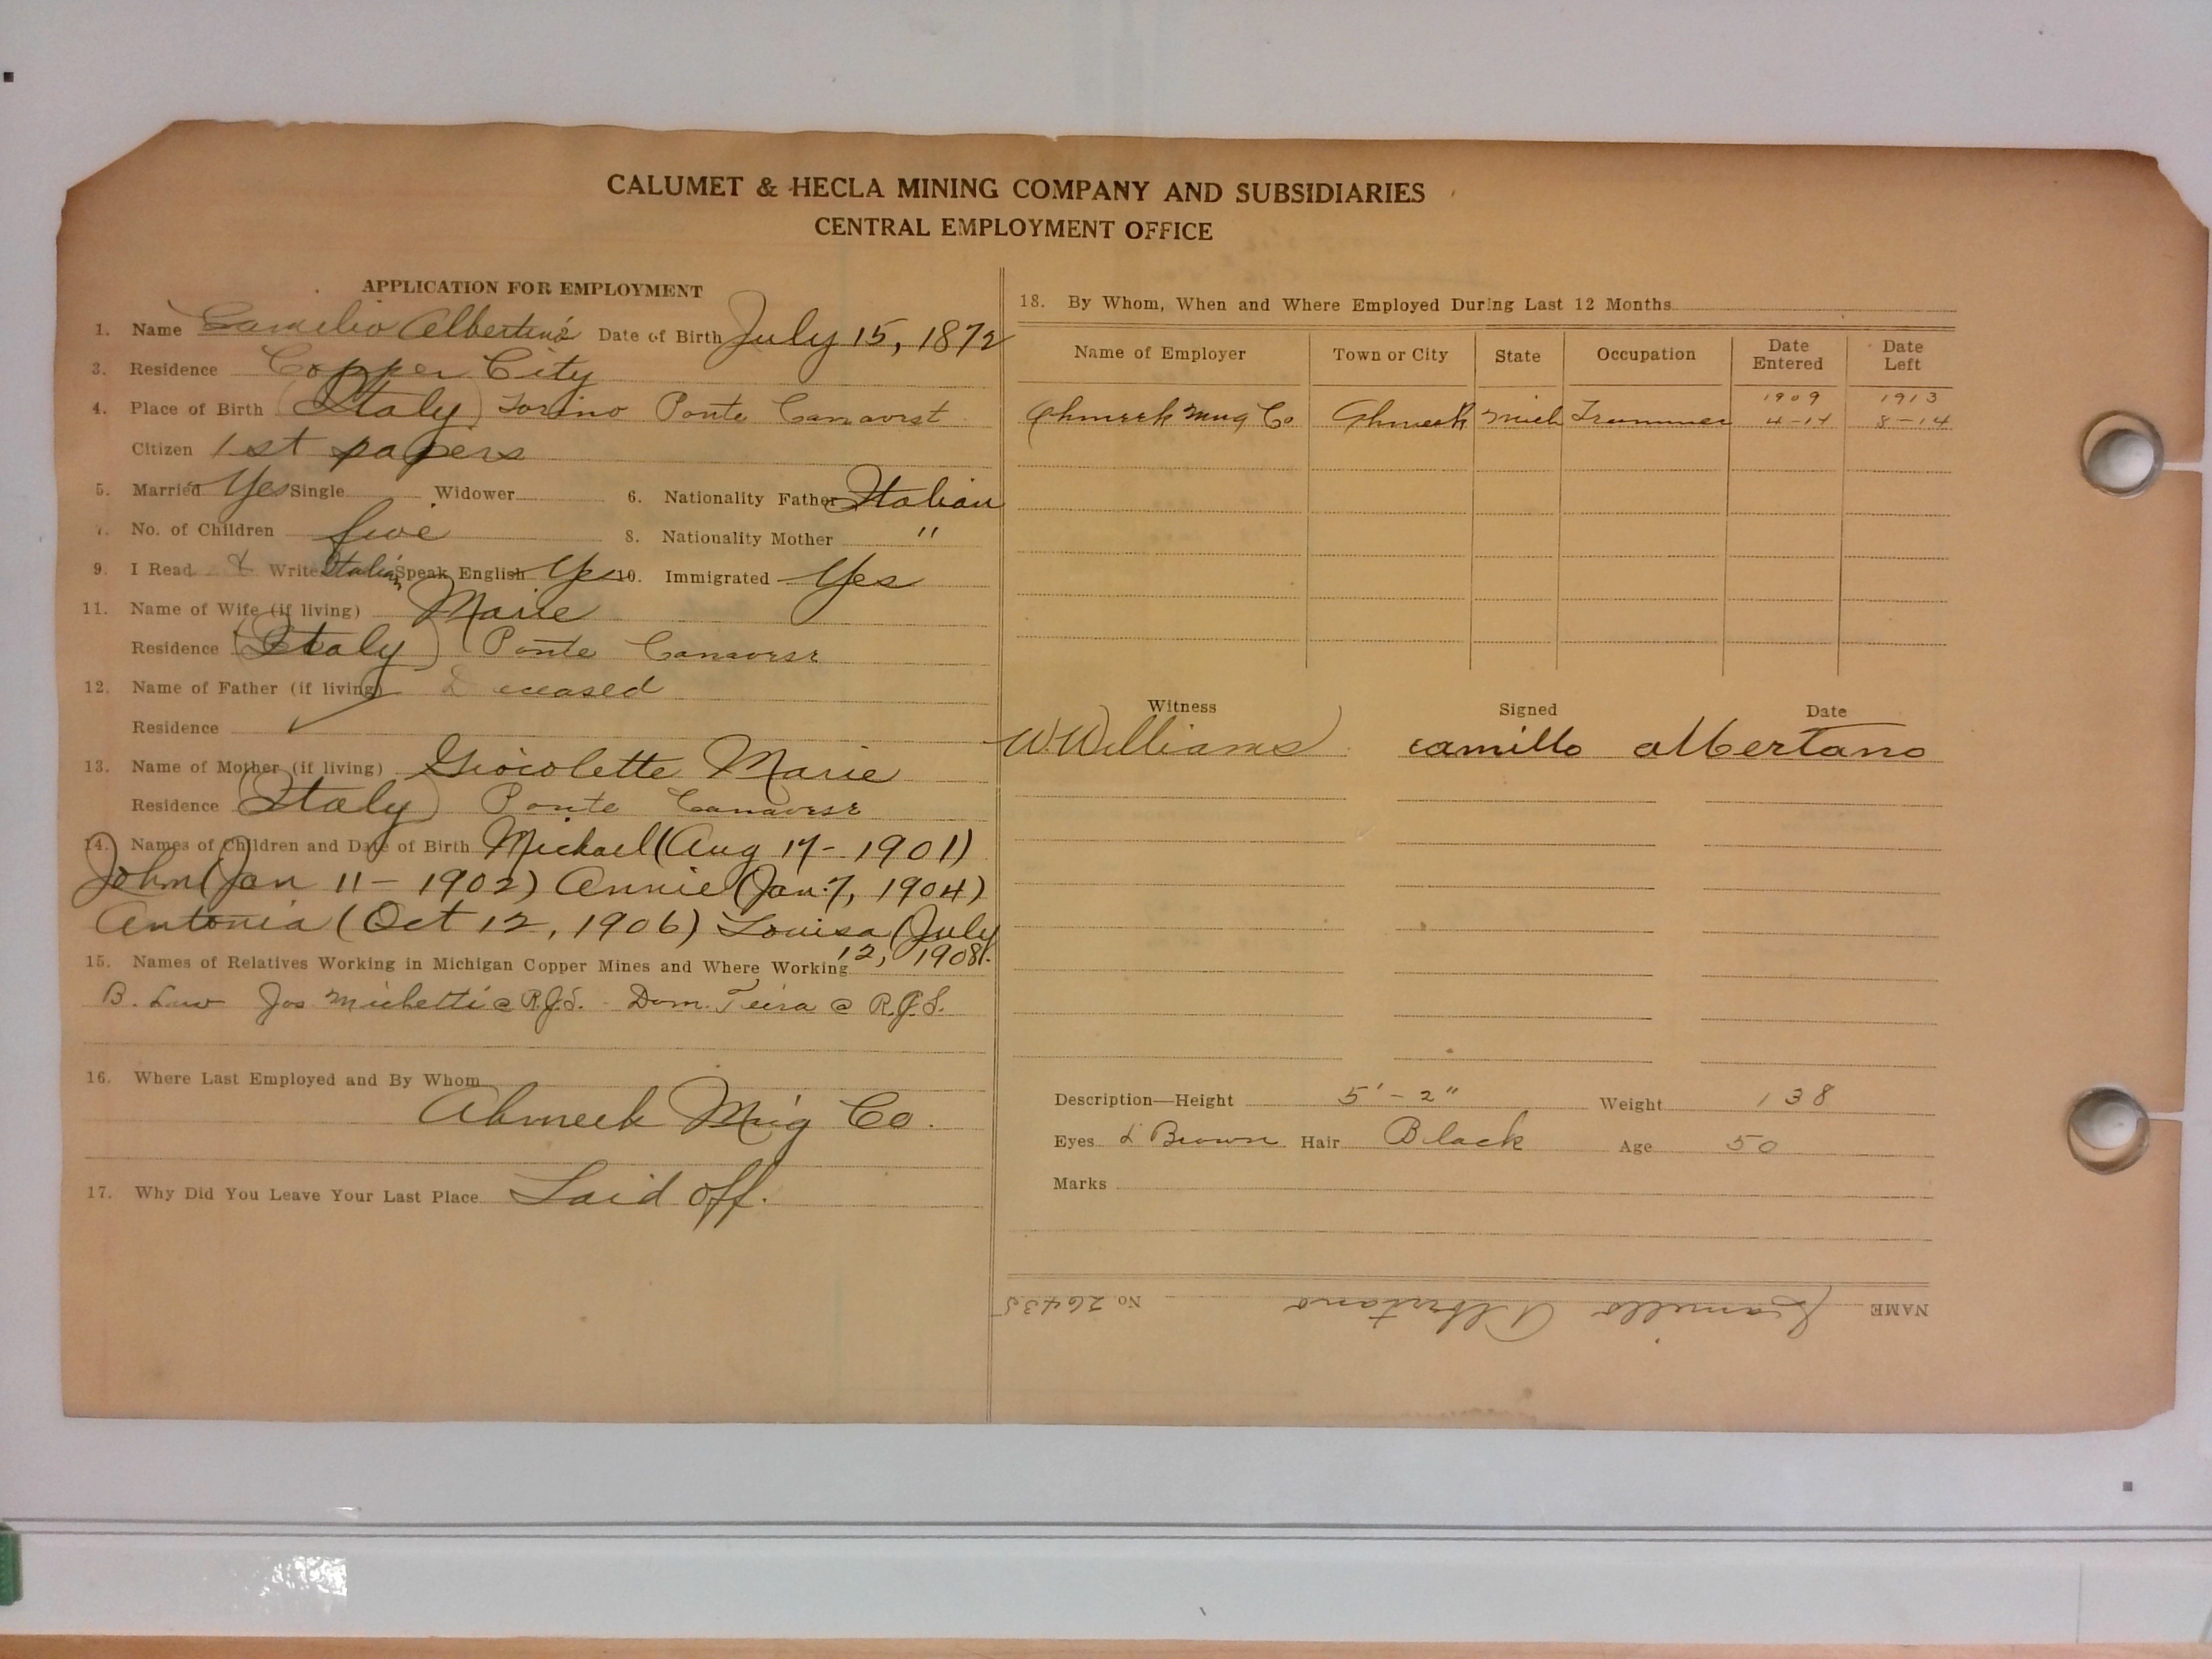 CALUMET & HECLA MINING COMPANY AND SUBSIDIARIES
CENTRAL EMPLOYMENT OFFICE
APPLICATION FOR EMPLOYMENT
1. Name Camilio Albertino Date of Birth July 15, 1872
3. Residence Copper City
4. Place of Birth (Italy) Torino Ponte Canavest
Citizen 1st papers
5. Married Yes Single Widower 6. Nationality Father Italian
7. No. of Children five 8. Nationality Mother "
9. I Read & Write Italian Speak English Yes 10. Immigrated Yes
11. Name of Wife (if living) Marie
Residence (Italy) Ponte Canavese
12. Name of Father (if living) Deceased
Residence
13. Name of Mother (if living) Giocolette Marie
Residence (Italy) Ponte Canavese
14. Names of Children and Date of Birth Michael (Aug 17 - 1901)
John (Jan 11 - 1902) Annie (Jan. 7, 1904)
Antonia (Oct 12, 1906) Louisa (July
12, 1908).
15. Names of Relatives Working in Michigan Copper Mines and Where Working
B. Law Jos Michetti @ R.J.S. - Dom. Teira @ R.J.S.
16. Where Last Employed and By Whom
Ahmeek Mng Co.
17. Why Did You Leave Your Last Place Laid off.
18. By Whom, When and Where Employed During Last 12 Months
Name of Employer Town or City State Occupation Date Entered Date Left
1909 1913
Ahmeek Mng Co Ahmeek Mich Trammer 4-14 8-14
Witness Signed Date
W. Williams camillo albertano
Description—Height 5' - 2" Weight 138
Eyes d Brown Hair Black Age 50
Marks
NAME Camillo Albertano No 26435